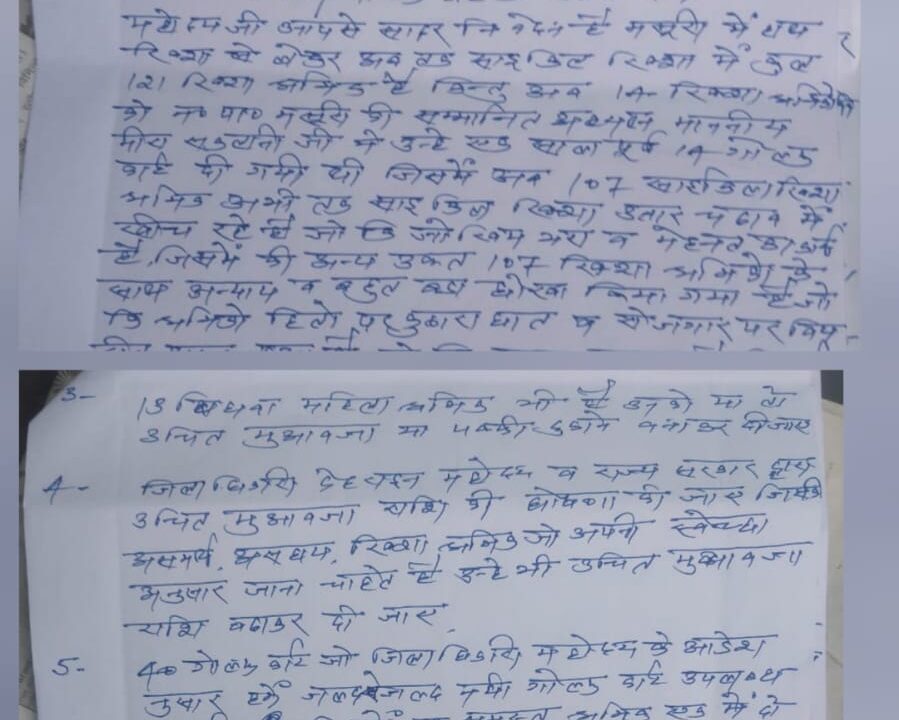 महोदय जी आपसे सादर निवेदन है मसूरी में हाथ
रिक्शा से लेकर अब तक साइकिल रिक्शा में कुल
121 रिक्शा श्रमिक है किन्तु अब 14 रिक्शा श्रमिको
को न० पा० मसूरी की सम्मानित अध्यक्षा माननीय
मीरा सकलानी जी ने उन्हे एक साल पूर्व 14 गोल्फ
कार्ट दी गयी थी जिसमें अब 107 साइकिल रिक्शा
श्रमिक अभी तक साइकिल रिक्शा उतार चढाव में
खीच रहे है जो कि जोखिम भरा व मेहनत का कार्य
है, जिसमे की अन्य उक्त 107 रिक्शा श्रमिको के
साथ अन्याय व बहुत बडा धोखा किया गया है जो
कि श्रमिको हितो पर कुठाराघात व रोजगार पर
3- 13 विधवा महिला श्रमिक भी है उनको या तो
उचित मुआवजा या पक्की दुकाने बनाकर दी जाए
4- जिलाधिकारी देहरादून महोदय व राज्य सरकार द्वारा
उचित मुआवजा राशि की घोषणा की जाए जिससे
असमर्थ, असहाय, रिक्शा श्रमिक जो अपनी स्वेच्छा
अनुसार जाना चाहते है उन्हे भी उचित मुआवजा
राशि बढाकर दी जाए
5- 40 गोल्फ कार्ट जो जिलाधिकारी महोदय के आदेश
नुसार हमें जल्द से जल्द नयी गोल्फ कार्ट उपलब्ध
समस्त श्रमिक एक में दो